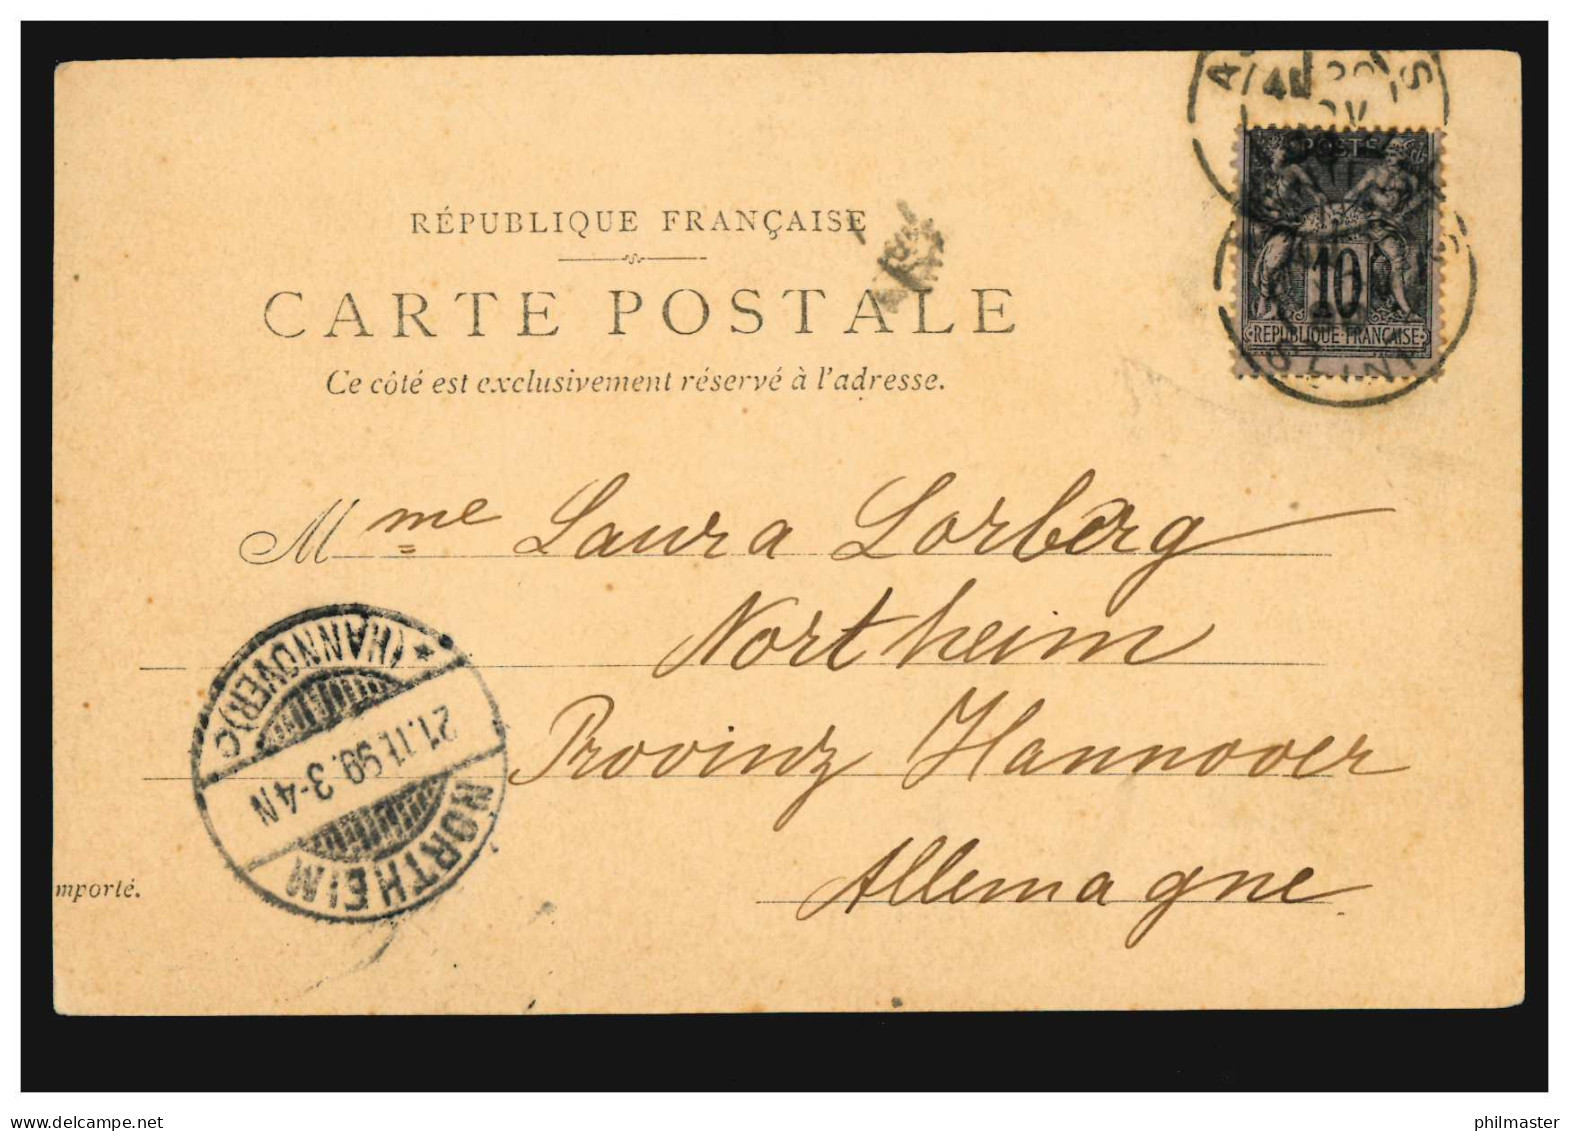 RÉPUBLIQUE FRANÇAISE
CARTE POSTALE
Ce côté est exclusivement réservé à l'adresse.
POSTE
10
REPUBLIQUE FRANÇAISE
Mme Laura Lorberg
Northeim
Provinz Hannover
Allemagne
NORTHEIM
21.11.99. 3-4N
*(HANNOVER)C
mporté.
www.delcampe.net
philmaster